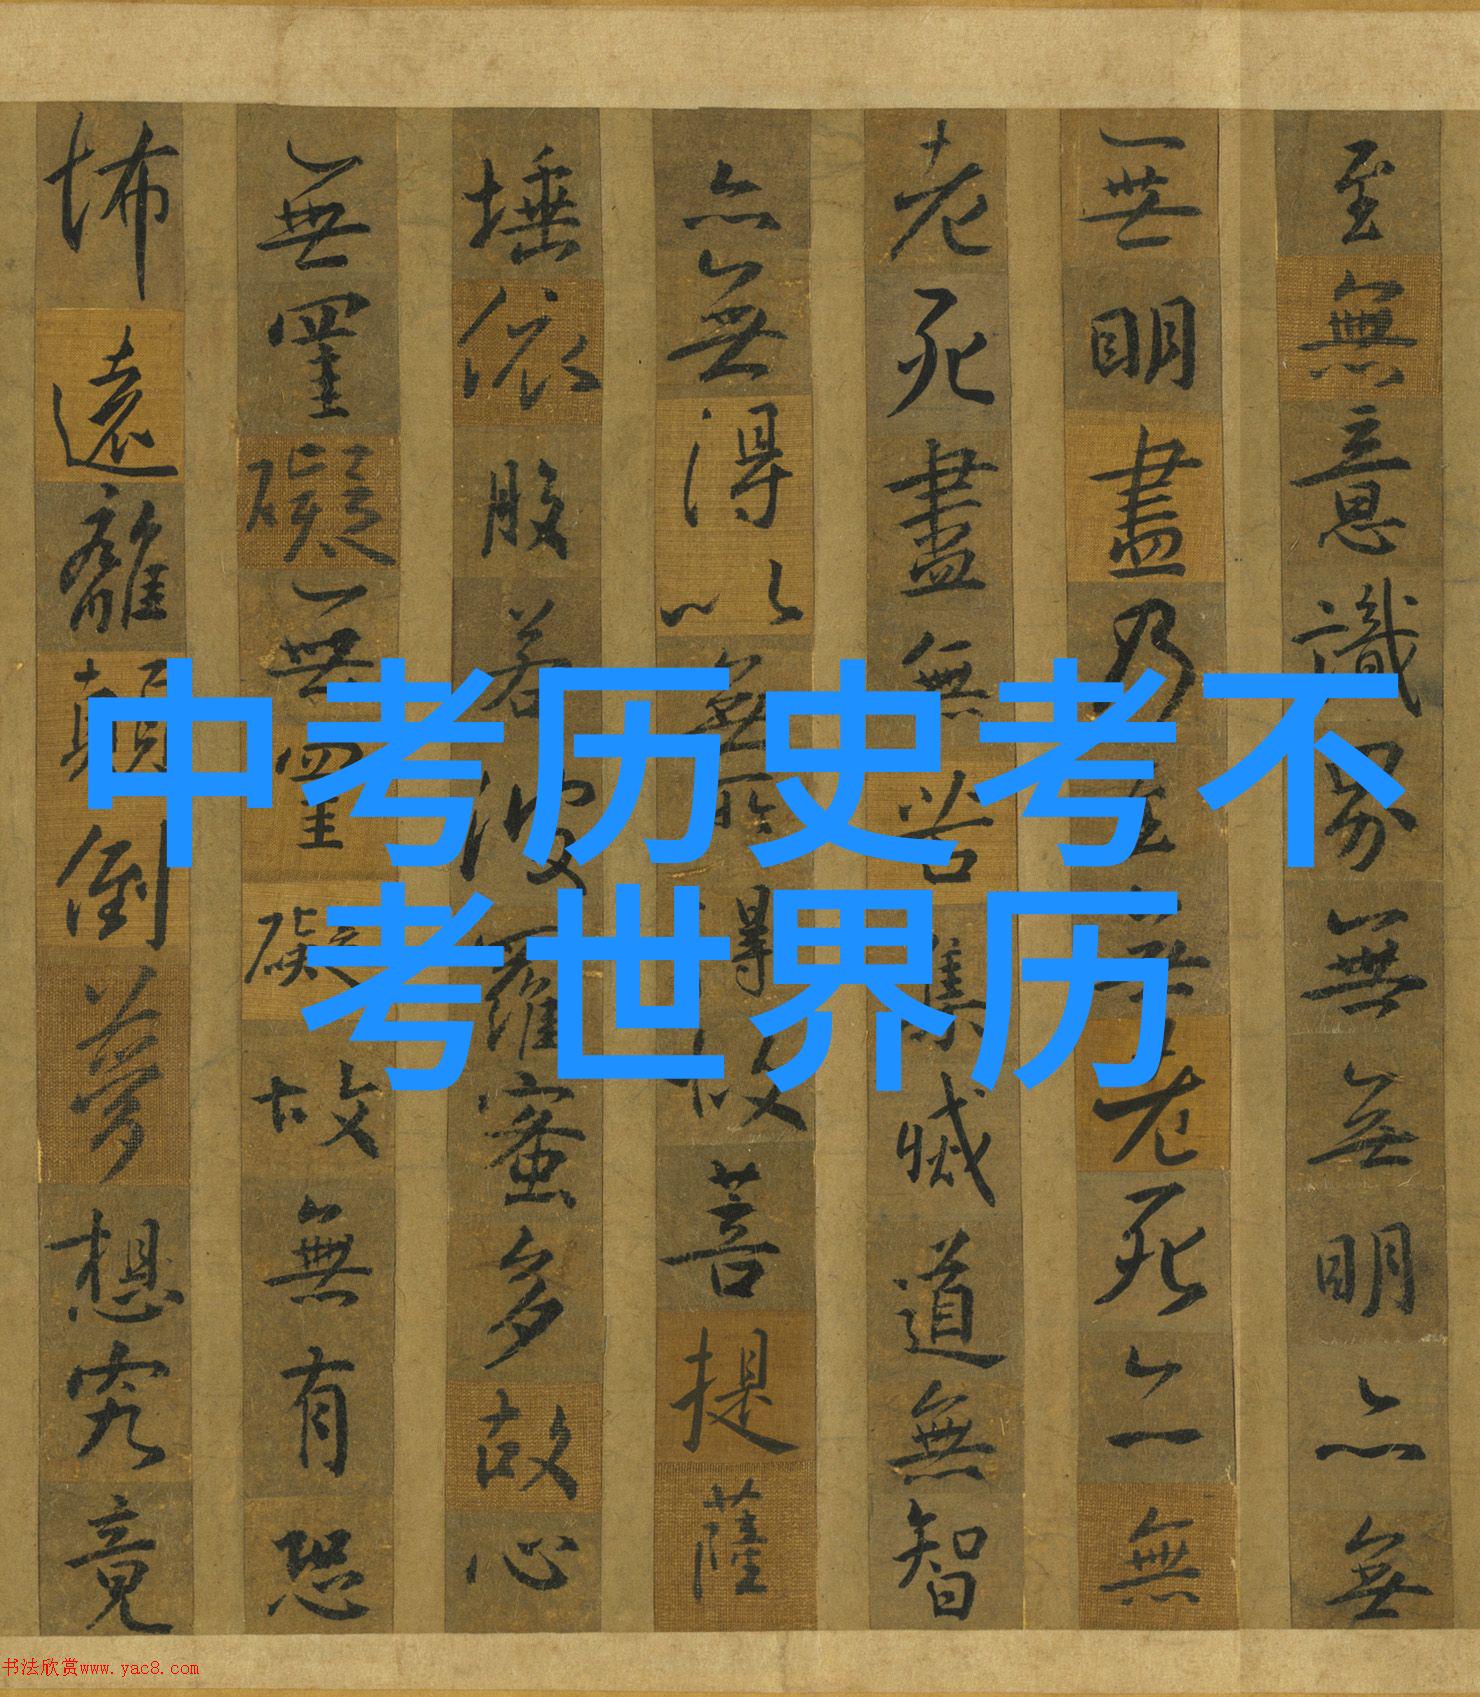 中考历史考不
考世界历
至無意識界無無明亦無
無明盡乃至無老死亦無
老死盡無苦集滅道無智
亦無得以無所得故菩提薩
埵依般若波羅蜜多故心
無罣礙無罣礙故無有恐
怖遠離顛倒夢想究竟
书法欣赏www.yac8.com